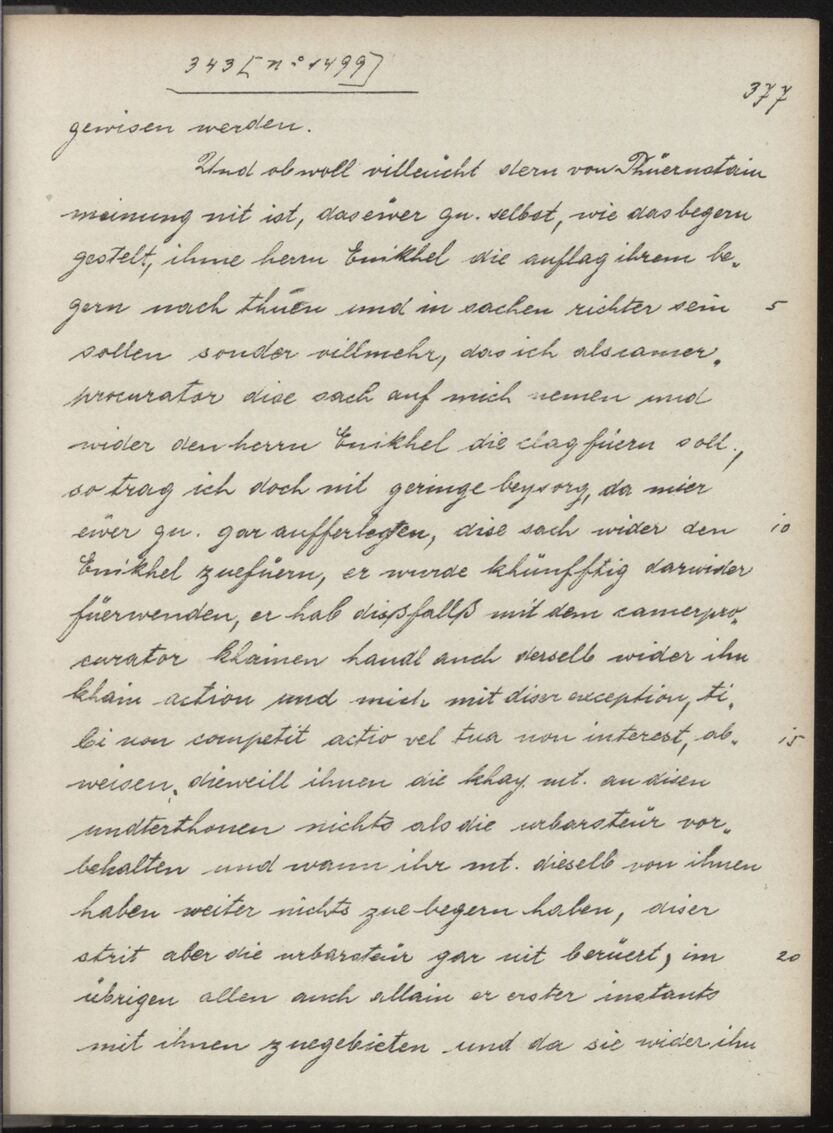 343 [n° 1499]
377
gewisen werden.
Und obwoll villeücht dern von Thüernstain
meinung nit ist, das ewer gn. selbst, wie das begern
gestelt, ihme herrn Enikhel die auflag ihrem be„
gern nach thuen und in sachen richter sein 5
sollen sonder villmehr, das ich als camer„
procurator dise sach auf mich nemen und
wider den herrn Enikhel die clag füern soll,
so trag ich doch nit geringe beysorg, da mier
ewer gn. gar aufferlegten, dise sach wider den 10
Enikhel zuefüern, er wurde khünfftig darwider
füerwenden, er hab dißfallß mit dem camerpro„
curator khainen handl auch derselb wider ihn
khain action und mich mit diser exception, ti„
bi non competit actio vel tua non interest, ab„ 15
weisen, dieweill ihnen die khay. mt. an disen
undterthonen nichts als die urbarsteür vor„
behalten und wann ihr mt. dieselb von ihnen
haben weiter nichts zue begern haben, diser
strit aber die urbarsteür gar nit berüert, im 20
übrigen allen auch allain er erster instants
mit ihnen zuegebieten und da sie wider ihn